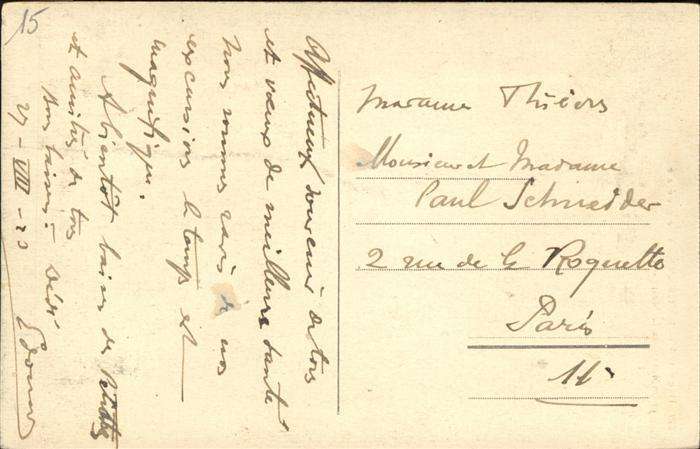 15
Affectueux souvenir de tous
et vœux de meilleure santé
Nous sommes ravis de nos
excursions le temps est
magnifique.
A bientôt baisers de
et amitiés de tous
Bons baisers
27-VIII-20
Edouard
Madame Thiers
Monsieur et Madame
Paul Schneider
2 rue de la Roquette
Paris
11e